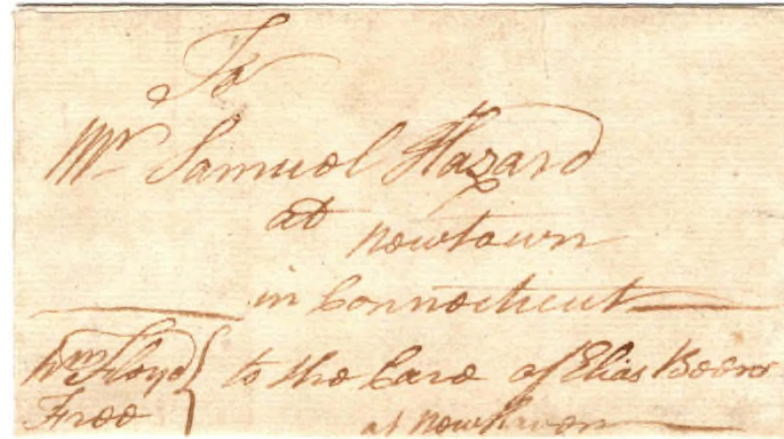 To
Mr Samuel Hazard
at
Newtown
in Connecticut
Wm Floyd } to the Care of Elias Beers
Free at Newhaven